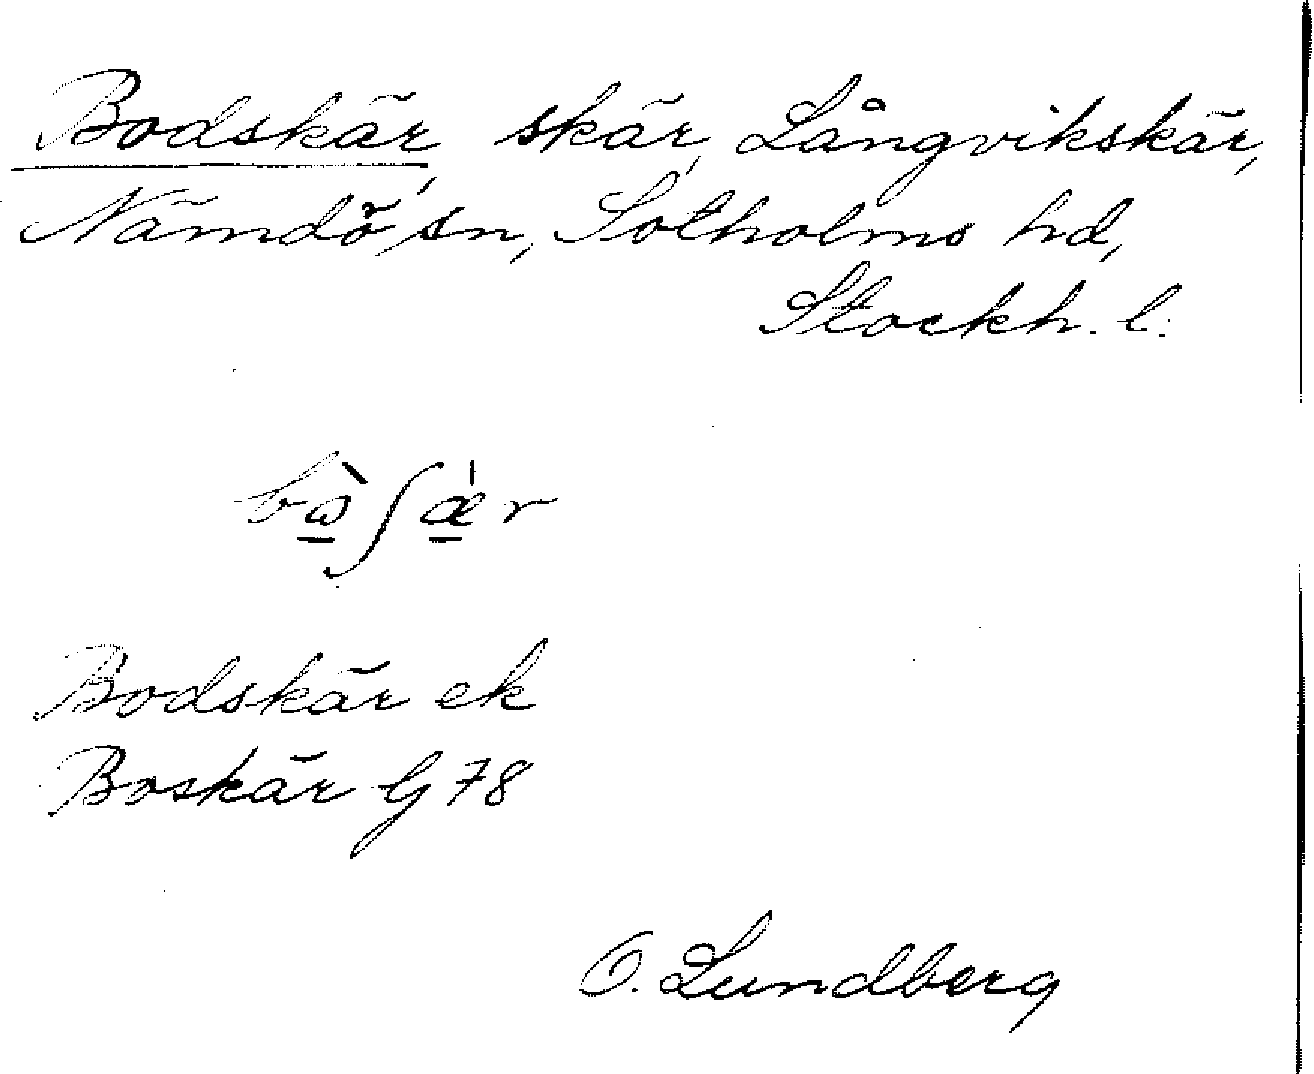 Bodskär, skär, Långvikskär,
Nämdö sn, Sotholms hd,
Stockh. l.
bὼ̱ʃæ̱̍r
Bodskär ek
Boskär G 78
O. Lundberg